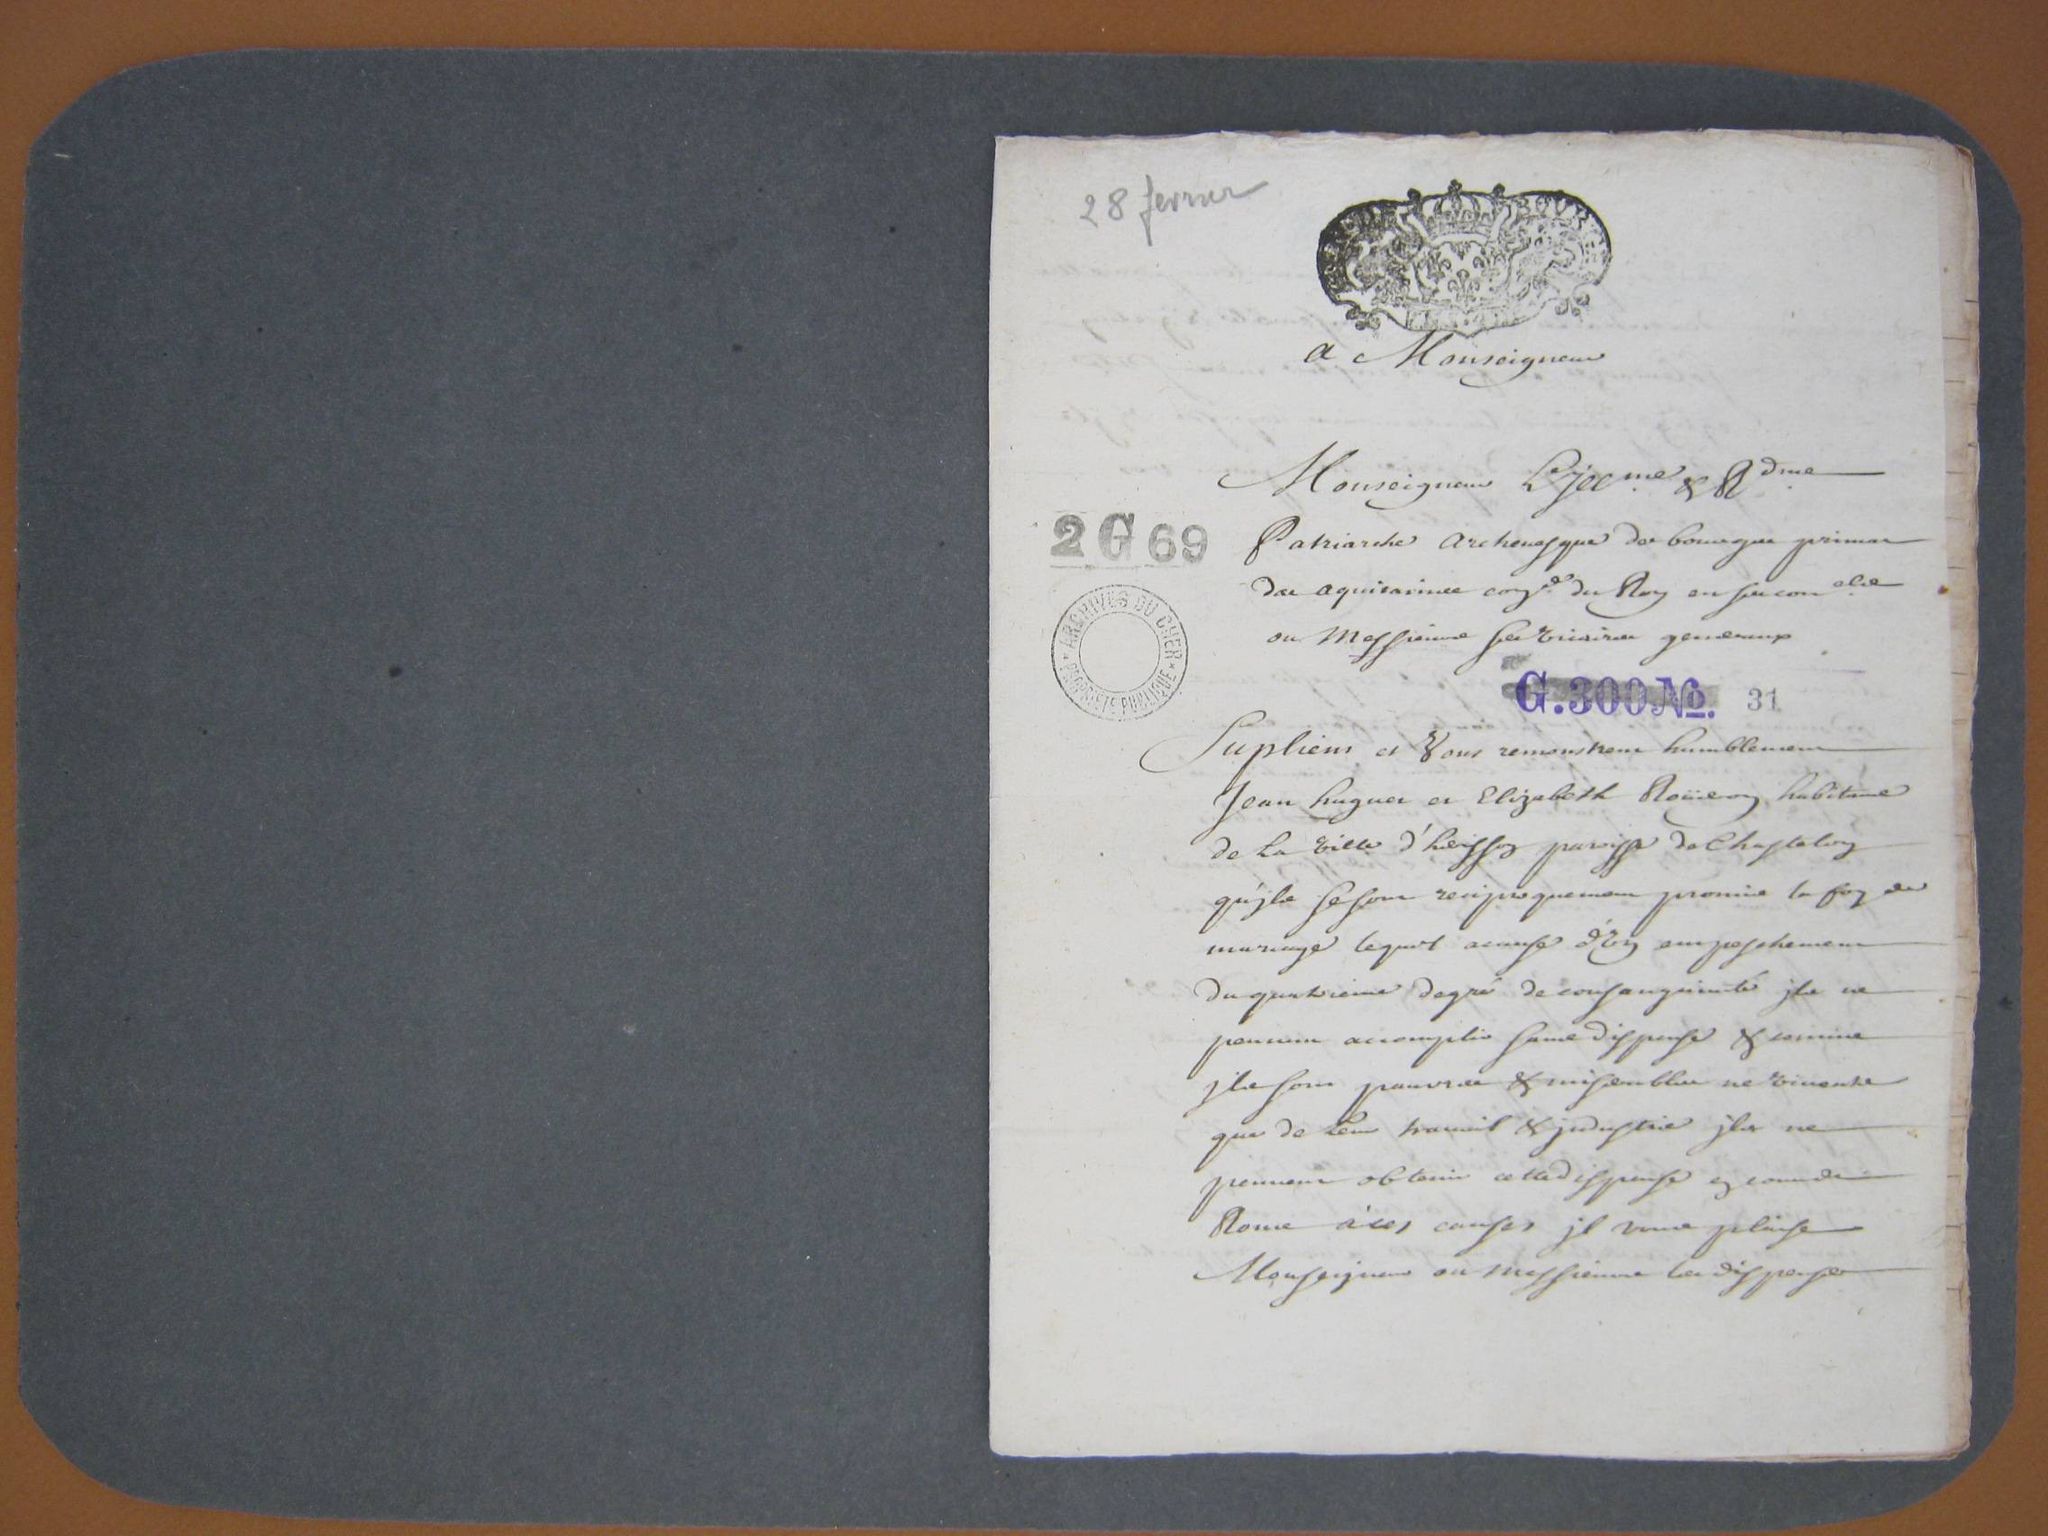 28 fevrier
a Monseigneur
Monseigneur L'Jllme & Rdme
2 G 69
Patriarche archeuesque de bourges primat
des aquitainnes conser du Roy en ses conels
ou Messieurs ses vicaires generaux
ARCHIVES DU CHER
PROPRIETE PUBLIQUE
G.300 No. 31
Suplient et vous remonstrent humblement
Jean huguet et Elizabeth Roüeron habitans
de la ville d'heisson paroisse de Chasteloy
qu'jls se sont reciproquement promis la foy de
mariage lequel acause d'vn empeschement
du quatrieme degré de consanguinité jls ne
peuuent accomplir sans dispense & comme
jls sont pauures & miserables ne viuants
que de leur trauail & jndustrie jls ne
peuuent obtenir cette dispense en cour de
Rome a'ces causes jl vous plaise
Monseigneur ou messieurs les dispenser